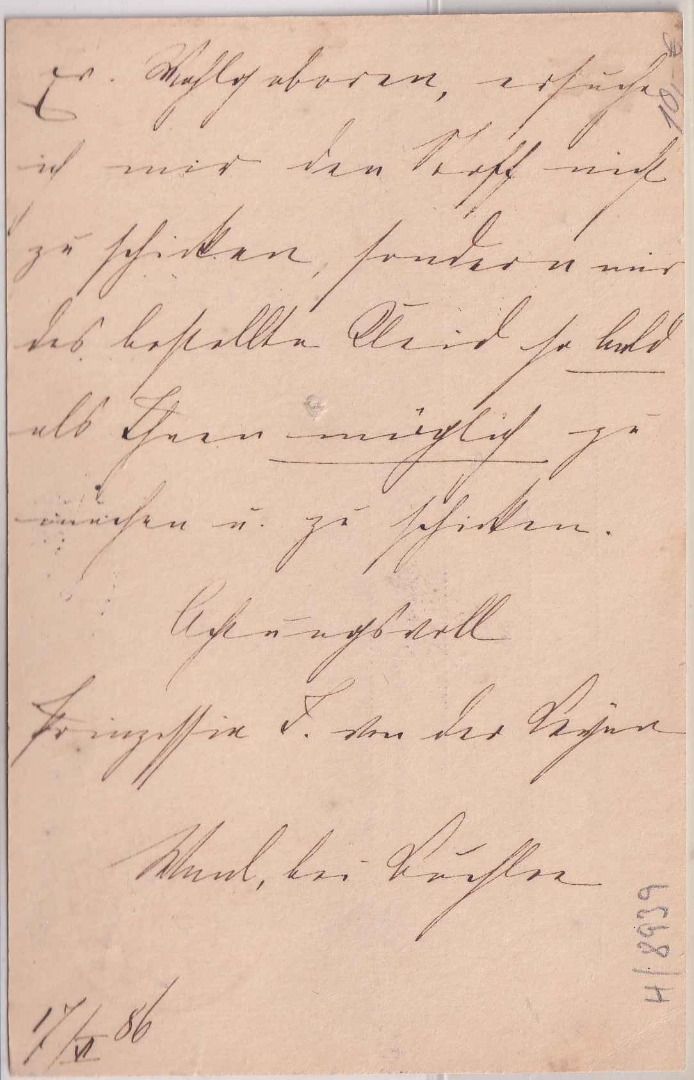 Ew. Wohlgeboren, ersuche
ich mir den Stoff nicht
zu schicken, sondern mir
das bestellte Kleid so bald
als Ihnen möglich zu
machen u. zu schicken.
Achtungsvoll
Prinzessin F. von der Leyen
Waal, bei Buchloe
17/VI 86
H/8939
10,-